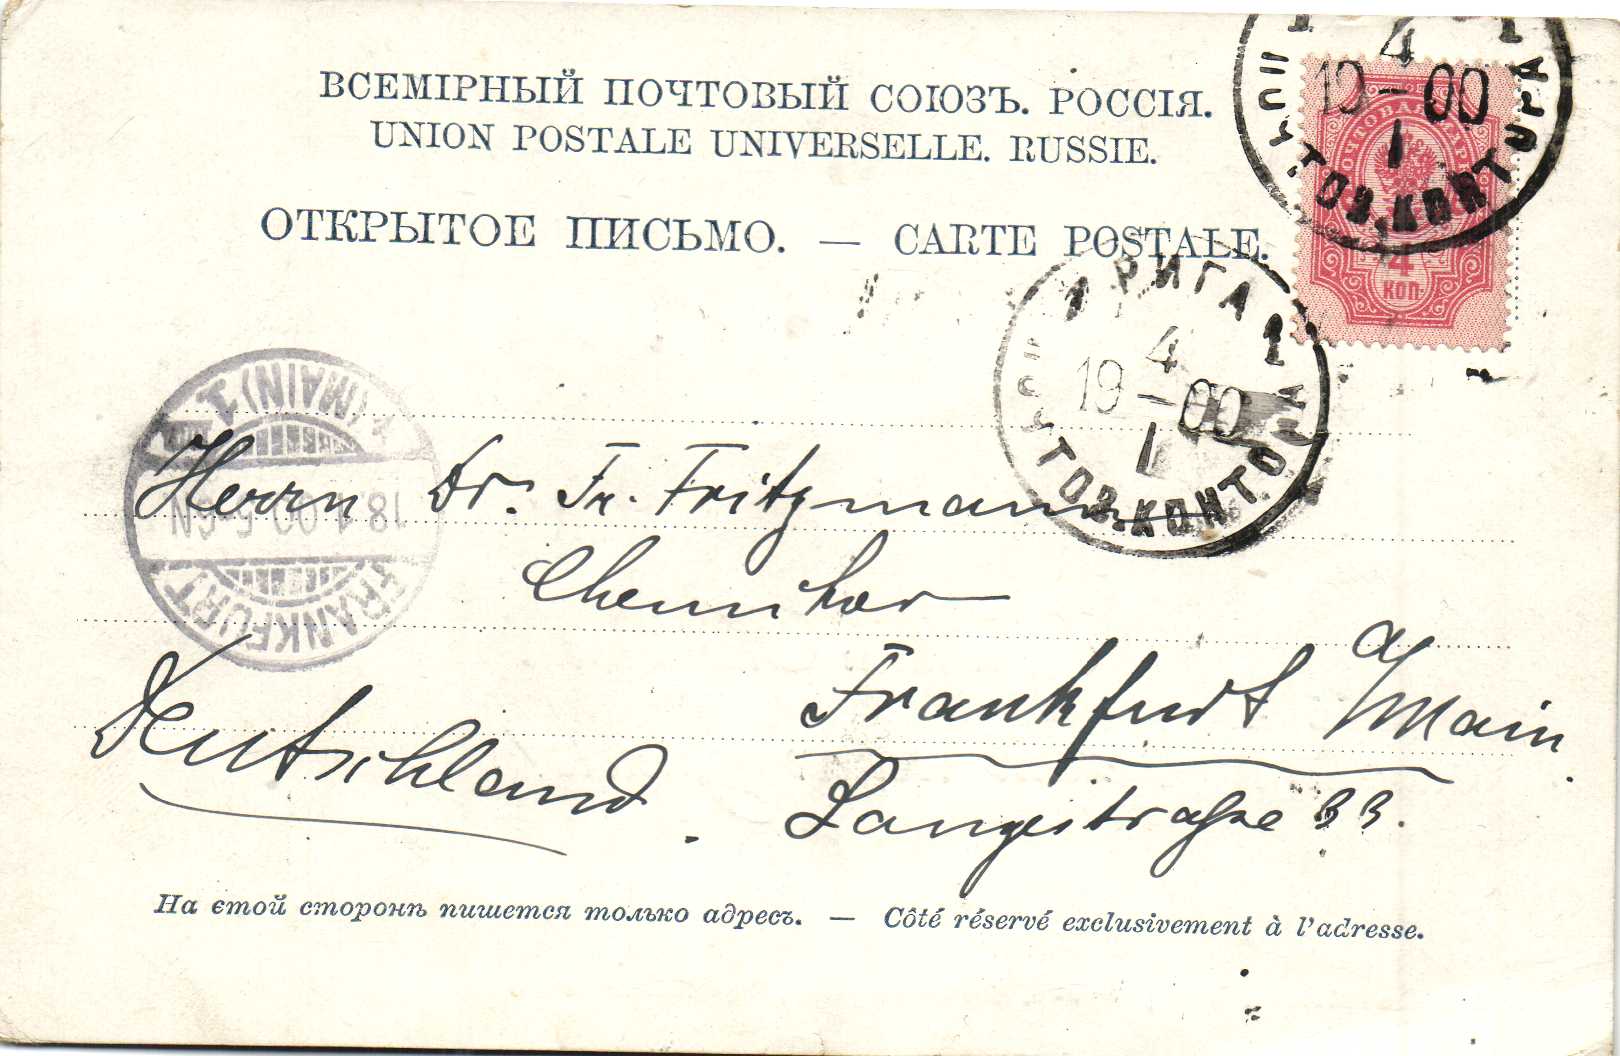 ВСЕМІРНЫЙ ПОЧТОВЫЙ СОЮЗЪ. РОССІЯ.
UNION POSTALE UNIVERSELLE. RUSSIE.
ОТКРЫТОЕ ПИСЬМО. — CARTE POSTALE.
4
19-00
I
ПОЧТОВ. КОНТОРА
ПОЧТОВАЯ МАРКА
4
КОП.
1 РИГА 1
4
19-00
I
ПОЧТОВ. КОНТОРА
FRANKFURT
18.1.00. 5-6N
(MAIN) 1
Herrn Dr. Fr. Fritzmann
Chemiker
Frankfurt a/Main
Deutschland.
Langestraße 33.
На етой сторонѣ пишется только адресъ. — Côté réservé exclusivement à l'adresse.